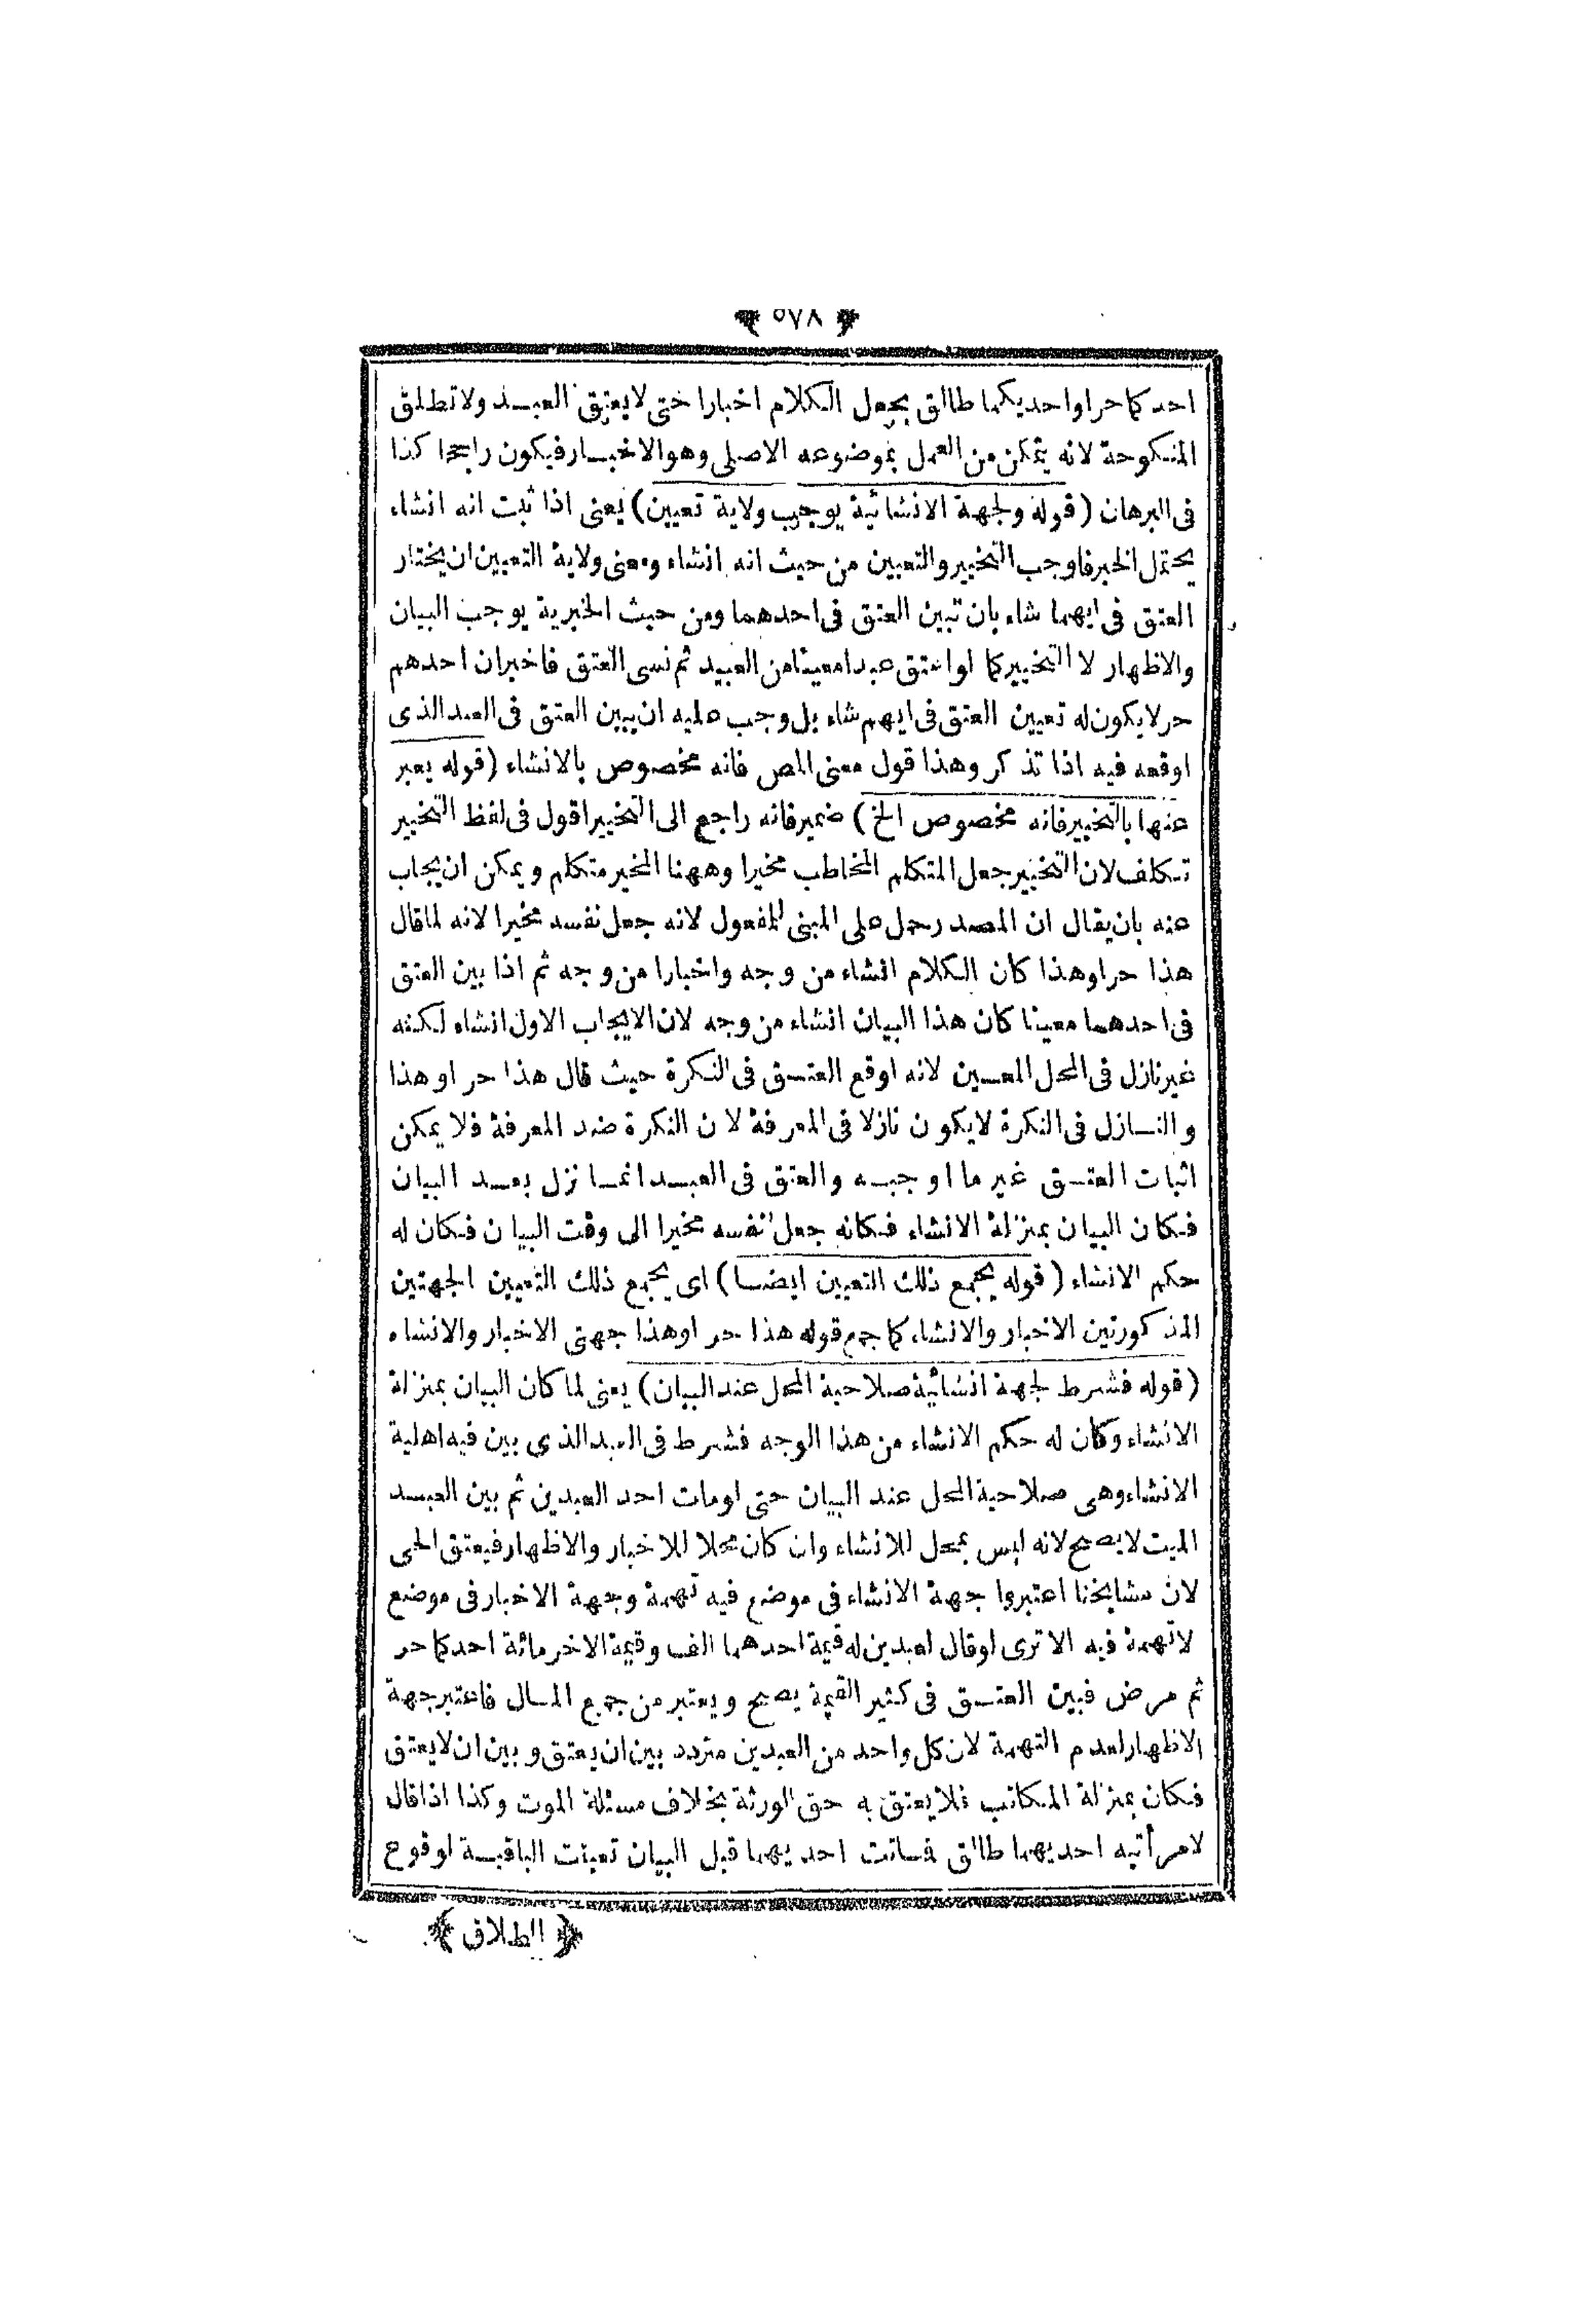 ﴿ ٥٧٨ ﴾
احدكما حر او احديكما طالق يجعل الكلام اخبارا حتى لايعتق العبد ولا تطلق
المنكوحة لانه يتمكن من العمل بموضوعه الاصلى وهو الاخبار فيكون راجحا كذا
فى البرهان (قوله ولجهة الانشائية يوجب ولاية تعيين) يعنى اذا ثبت انه انشاء
يحتمل الخبر فاوجب التخيير والتعيين من حيث انه انشاء ومعنى ولاية التعيين ان يختار
العتق فى ايهما شاء بان تبين العتق فى احدهما ومن حيث الخبرية يوجب البيان
والاظهار لا التخيير كما لو اعتق عبدا معينا من العبيد ثم نسى العتق فاخبران احدهم
حر لايكون له تعيين العتق فى ايهم شاء بل وجب عليه ان يبين العتق فى العبد الذى
اوقعه فيه اذا تذكر وهذا قول معنى المص فانه مخصوص بالانشاء (قوله يعبر
عنها بالتخيير فانه مخصوص الخ) ضمير فانه راجع الى التخيير اقول فى لفظ التخيير
تكلف لان التخيير جعل المتكلم المخاطب مخيرا وههنا المخير متكلم ويمكن ان يجاب
عنه بان يقال ان المصدر حمل على المبنى للمفعول لانه جعل نفسه مخيرا لانه لما قال
هذا حر او هذا كان الكلام انشاء من وجه واخبارا من وجه ثم اذا بين العتق
فى احدهما معينا كان هذا البيان انشاء من وجه لان الايجاب الاول انشاء لكنه
غير نازل فى المحل المعين لانه اوقع العتق فى النكرة حيث قال هذا حر او هذا
والنازل فى النكرة لايكون نازلا فى المعرفة لان النكرة ضد المعرفة فلا يمكن
اثبات العتق غير ما اوجبه والعتق فى العبد انما نزل بعد البيان
فكان البيان بمنزلة الانشاء فكانه جعل نفسه مخيرا الى وقت البيان فكان له
حكم الانشاء (قوله يجمع ذلك التعيين ايضا) اى يجمع ذلك التعيين الجهتين
المذكورتين الاخبار والانشاء كما جمع قوله هذا حر او هذا جهتى الاخبار والانشاء
(قوله فشرط لجهة انشائية صلاحية المحل عند البيان) يعنى لما كان البيان بمنزلة
الانشاء وكان له حكم الانشاء من هذا الوجه فشرط فى العبد الذى بين فيه اهلية
الانشاء وهى صلاحية المحل عند البيان حتى لو مات احد العبدين ثم بين العبد
الميت لايصح لانه ليس بمحل للانشاء وان كان محلا للاخبار والاظهار فيعتق الحى
لان مشايخنا اعتبروا جهة الانشاء فى موضع فيه تهمة وجهة الاخبار فى موضع
لاتهمة فيه الا ترى لو قال لعبدين له قيمة احدهما الف وقيمة الاخر مائة احدكما حر
ثم مرض فبين العتق فى كثير القيمة يصح ويعتبر من جميع المال فاعتبر جهة
الاظهار لعدم التهمة لان كل واحد من العبدين متردد بين ان يعتق وبين ان لايعتق
فكان بمنزلة المكاتب فلا يعتق به حق الورثة بخلاف مسئلة الموت وكذا اذا قال
لامرأتيه احديهما طالق فماتت احديهما قبل البيان تعينت الباقية لوقوع
﴿ الطلاق ﴾